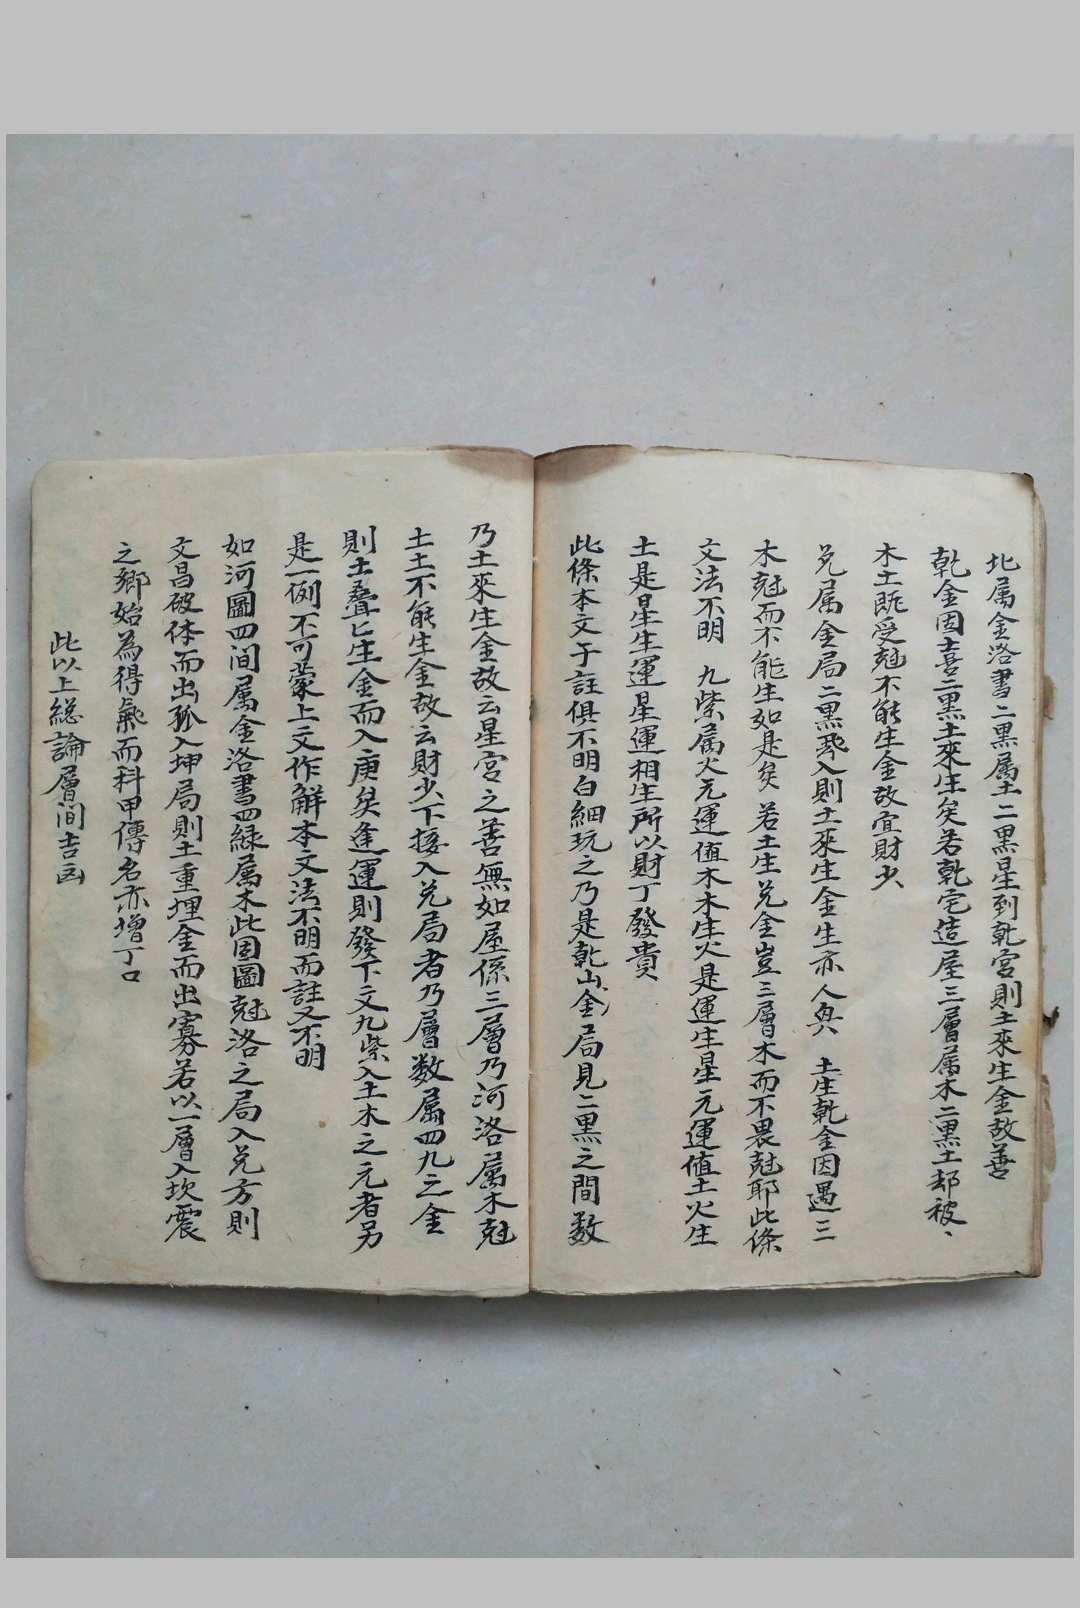 北属金洛書二黒属土二黒星到乾宮則土來生金故善
乾金因喜二黒土來生矣若乾宅造屋三層属木二黒土却被、
木土既受尅不能生金故宜財少
兊属金局二黒飛入則土來生金生亦人興　土生乾金因遇三
木尅而不能生如是矣　若土生兊金豈三層木而不畏尅耶此條
文法不明　九紫属火元運值木木生火是運生星元運值土火生
土是星生運星運相生所以財丁發貴
此條本文于註俱不明白細玩之乃是乾山金局見二黒之間数
乃土來生金故云星宮之善無如屋係三層乃河洛属木尅
土土不能生金故云財少下接入兊局者乃層数属四九之金
則土叠匕生金而入庚矣逢運則發下文九紫入土木之元者另
是一例不可蒙上文作解本文法不明而註又不明
如河圖四间属金洛書四緑属木此固圖尅洛之局入兊方則
文昌破体而出孤入坤局則土重埋金而出寡若以一層入坎震
之郷始為得氣而科甲傳名亦增丁口
此以上総論層间吉凶